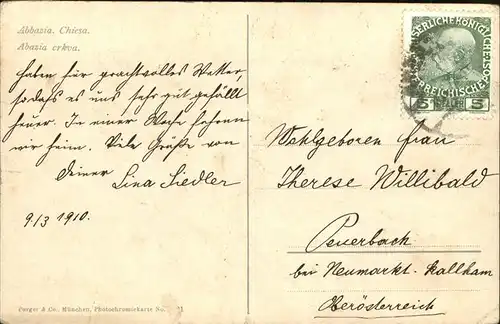 Abbazia. Chiesa.
Abazia crkva.
haben für prachtvolles Wetter,
sodass es uns sehr gut gefällt
heuer. In einer Woche fahren
wir heim. Viele Grüße von
Deiner
Lina Siedler
9./3 1910.
Poeger & Co., München, Photochromiekarte No.
KAISERLICHE KÖNIGLICHE
ÖSTERREICHISCHE
5 5
Wohlgeboren Frau
Therese Willibald
Peuerbach
bei Neumarkt-Kallham
Oberösterreich